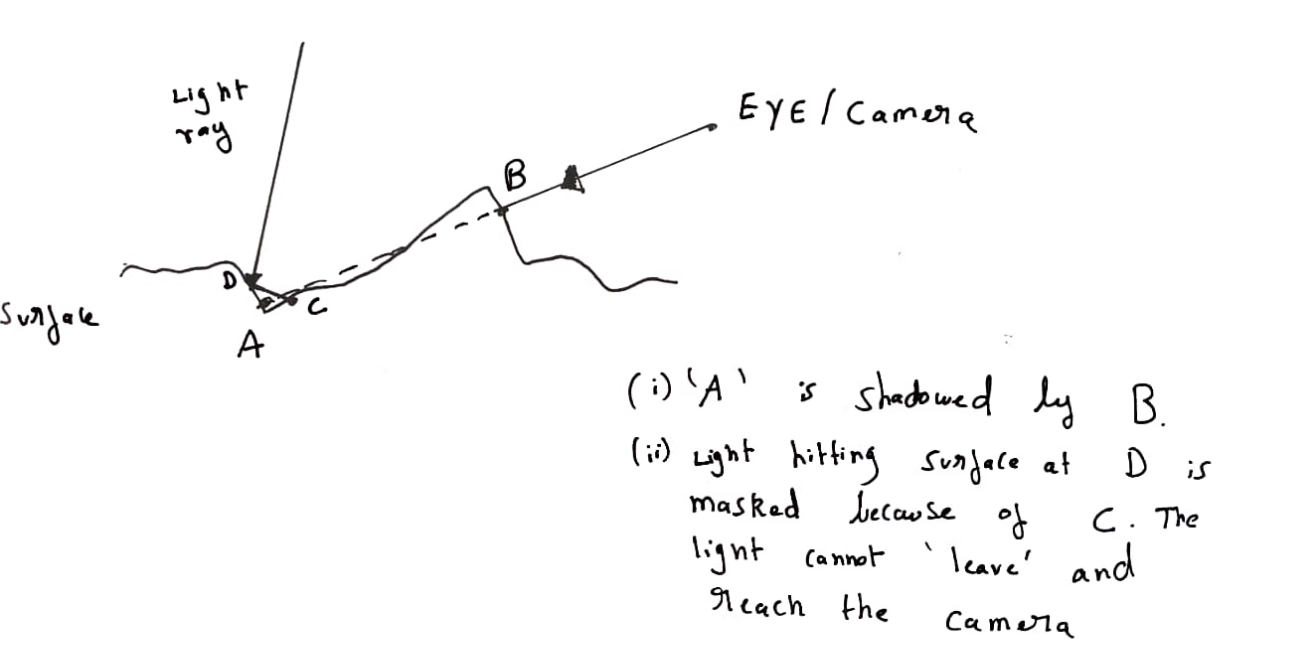 Light
ray
EYE / Camera
B
D
C
Surface
A
(i) 'A' is shadowed by B.
(ii) Light hitting surface at D is
masked because of C. The
light cannot 'leave' and
reach the camera